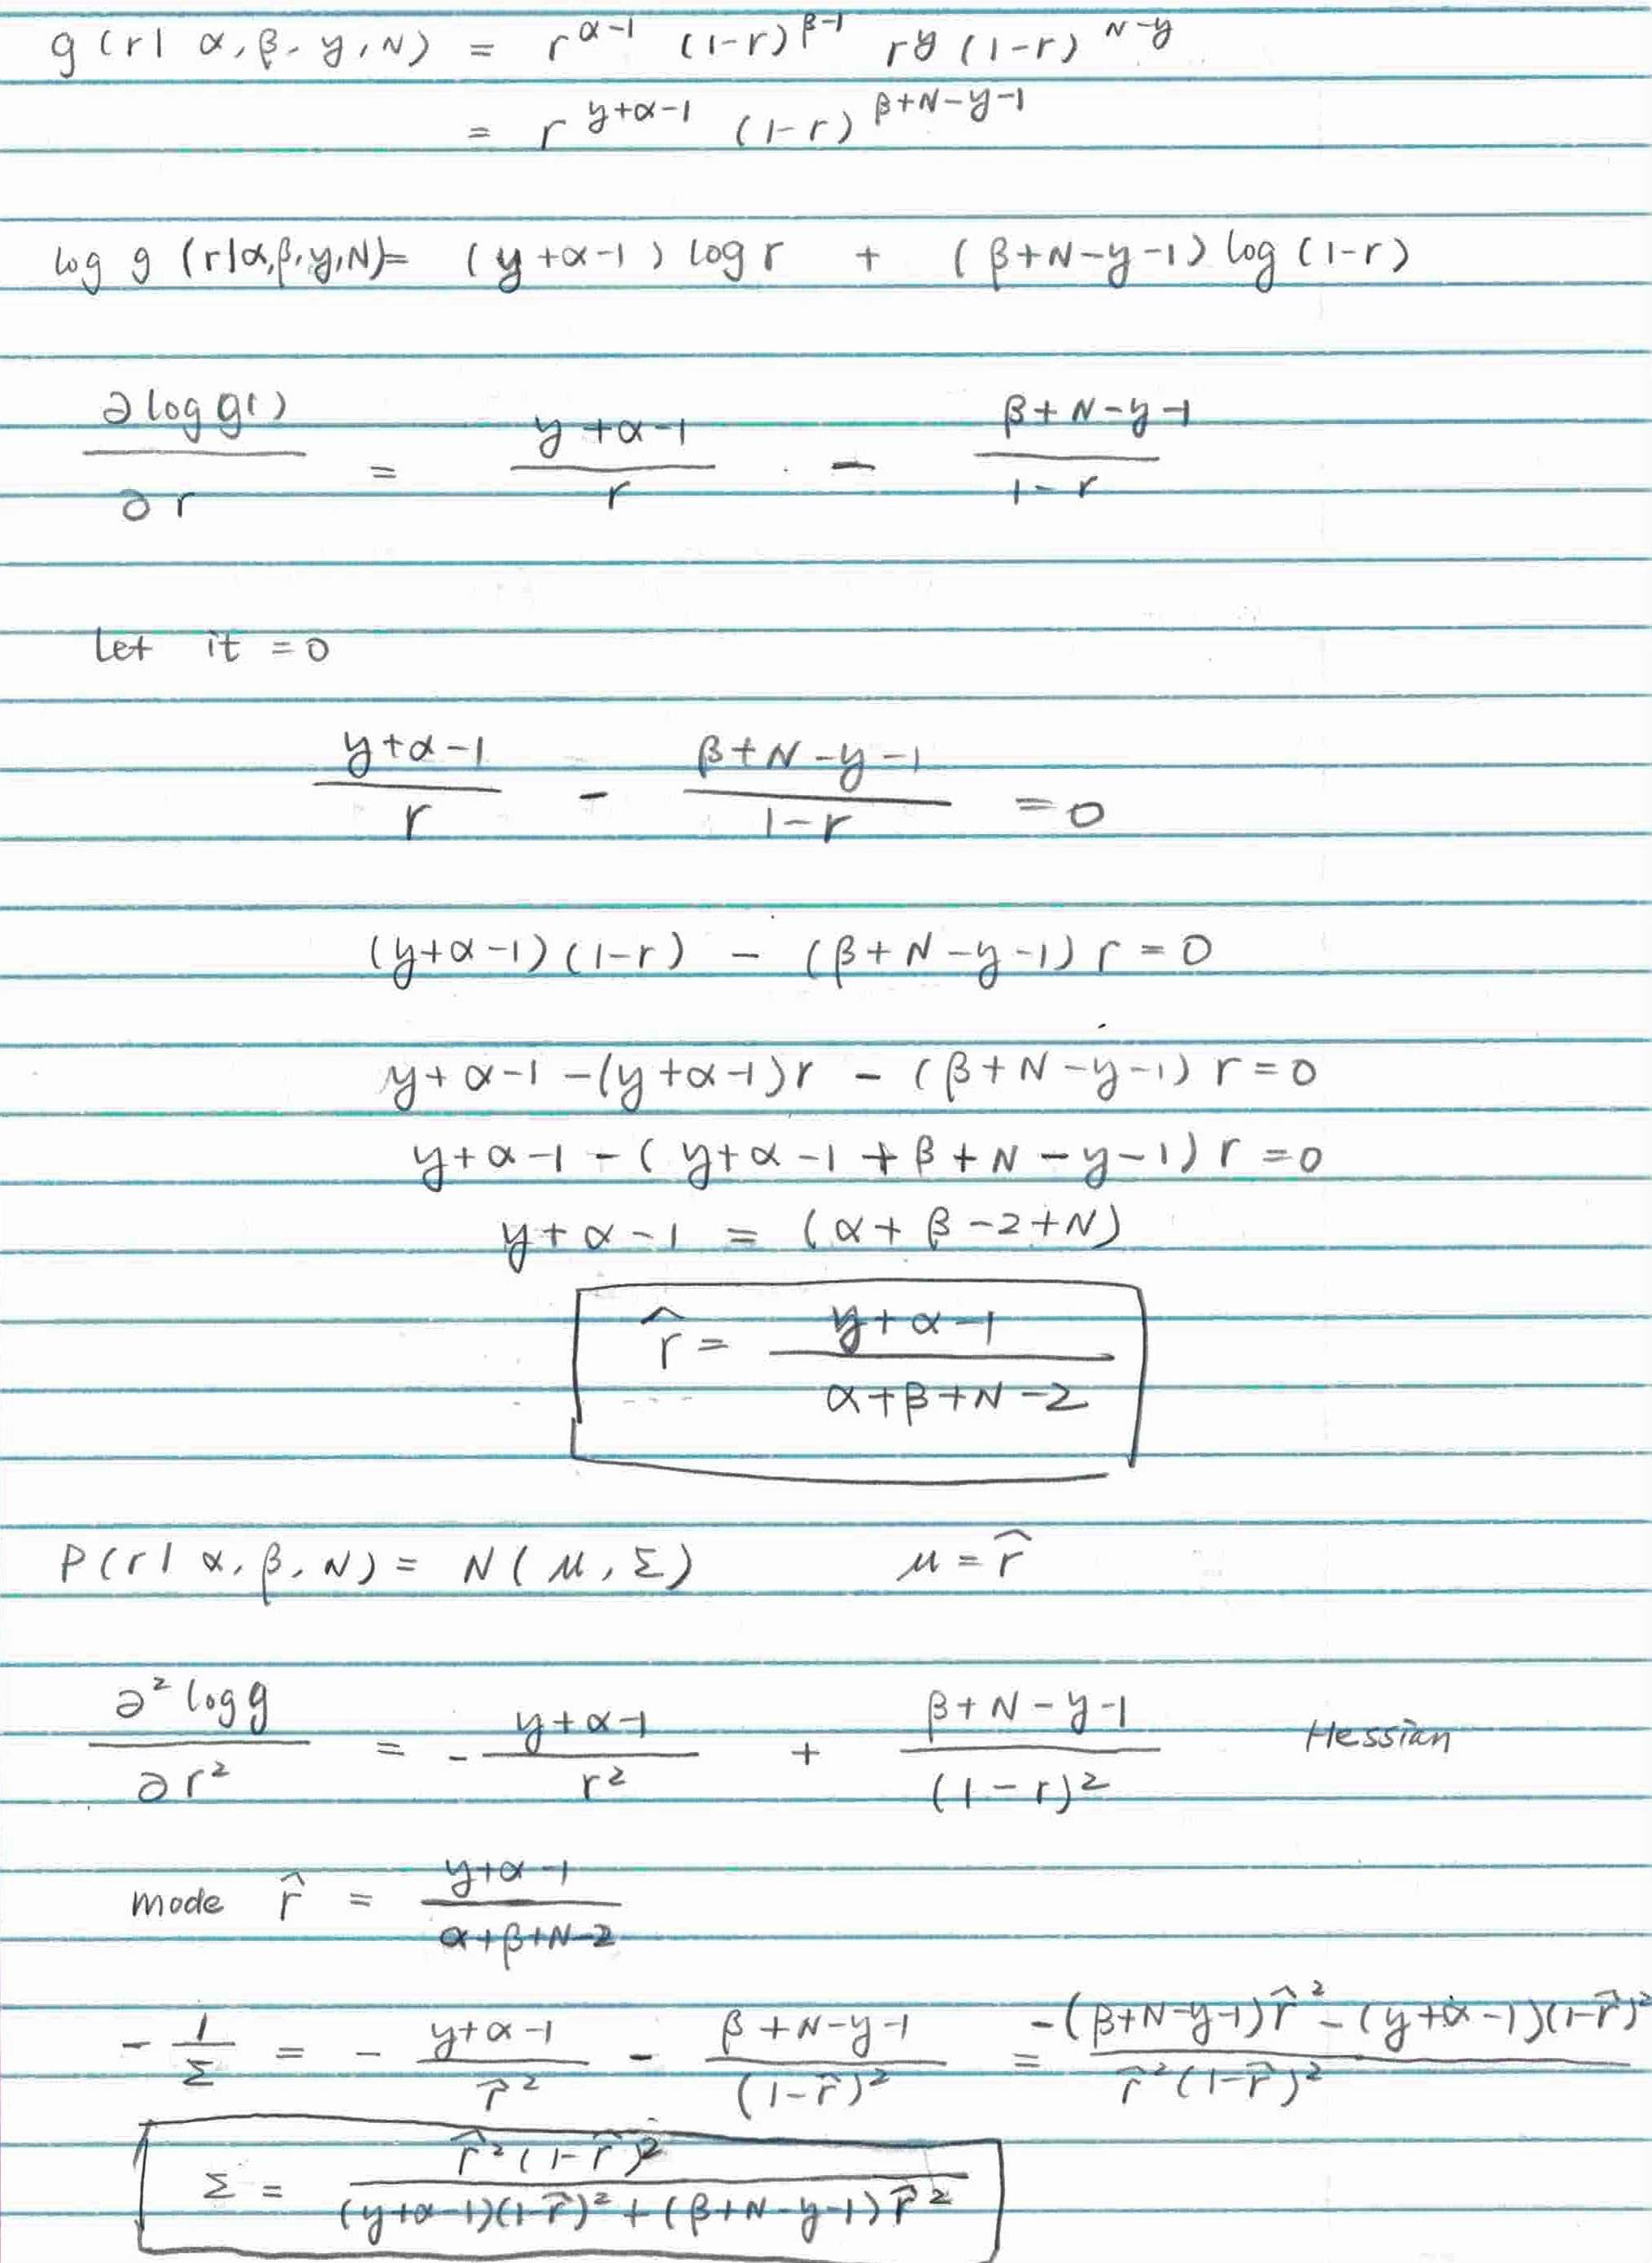 g(r| α,β,y,N) = r^{α-1} (1-r)^{β-1} r^y (1-r)^{N-y}
= r^{y+α-1} (1-r)^{β+N-y-1}
log g (r|α,β,y,N) = (y+α-1) log r + (β+N-y-1) log (1-r)
∂ log g() / ∂r = (y+α-1)/r - (β+N-y-1)/(1-r)
Let it = 0
(y+α-1)/r - (β+N-y-1)/(1-r) = 0
(y+α-1)(1-r) - (β+N-y-1) r = 0
y+α-1-(y+α-1)r - (β+N-y-1) r = 0
y+α-1-(y+α-1+β+N-y-1) r = 0
y+α-1 = (α+β-2+N)
r̂ = (y+α-1)/(α+β+N-2)
P(r| α,β,N) = N(μ,Σ) μ = r̂
∂² log g / ∂r² = - (y+α-1)/r² + (β+N-y-1)/(1-r)² Hessian
mode r̂ = (y+α-1)/(α+β+N-2)
- 1/Σ = - (y+α-1)/r̂² - (β+N-y-1)/(1-r̂)² = (-(β+N-y-1)r̂² - (y+α-1)(1-r̂)²)/(r̂²(1-r̂)²)
Σ = (r̂²(1-r̂)²)/((y+α-1)(1-r̂)² + (β+N-y-1)r̂²)